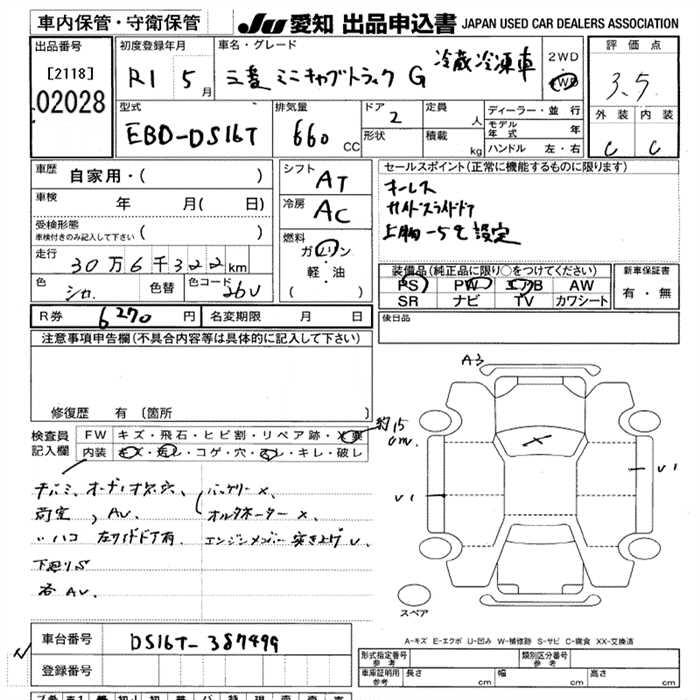 車内保管・守衛保管
JU 愛知 出品申込書 JAPAN USED CAR DEALERS ASSOCIATION
出品番号
[2118]
02028
初度登録年月
R1 5 月
車名・グレード
三菱 ミニキャブトラック G 冷蔵冷凍車
2WD
4WD
評価点
3.5
外装 内装
C C
型式
EBD-DS16T
排気量
660 CC
ドア
2
形状
定員 人
積載 kg
ディーラー・並行
モデル年式 年
ハンドル 左・右
車歴 自家用・( )
車検 年 月( 日)
受検形態
車検付きのみ記入して下さい ( )
走行 30万6千322km
色 シロ 色替 色コード 26U
シフト AT
冷房 AC
燃料
ガソリン
軽・油
( )
セールスポイント(正常に機能するものに限ります)
キーレス
サイドスライドドア
上物-5℃設定
装備品(純正品に限り○をつけてください)
PS PW エアB AW
SR ナビ TV カワシート
新車保証書
有・無
R券 6270 円 名変期限 月 日
後日品
注意事項申告欄(不具合内容等は具体的に記入して下さい)
修復歴 有 (箇所 )
検査員記入欄
FW キズ・飛石・ヒビ割・リペア跡・X要
内装 キズ・汚レ・コゲ・穴・スレ・キレ・破レ
約15cm
A3
バッテリーX、
荷室、AU、
オルタネーターX、
ハコ 左サイドドア有、
エンジンメンバー突き上げU、
下廻りS
各AU、
U1
U1
スペア
A-キズ E-エクボ U-凹み W-補修跡 S-サビ C-腐食 XX-交換済
車台番号 DS16T-387499
登録番号
形式指定番号 参考
類別区分番号 参考
車庫証明用 参考 長さ cm 幅 cm 高さ cm